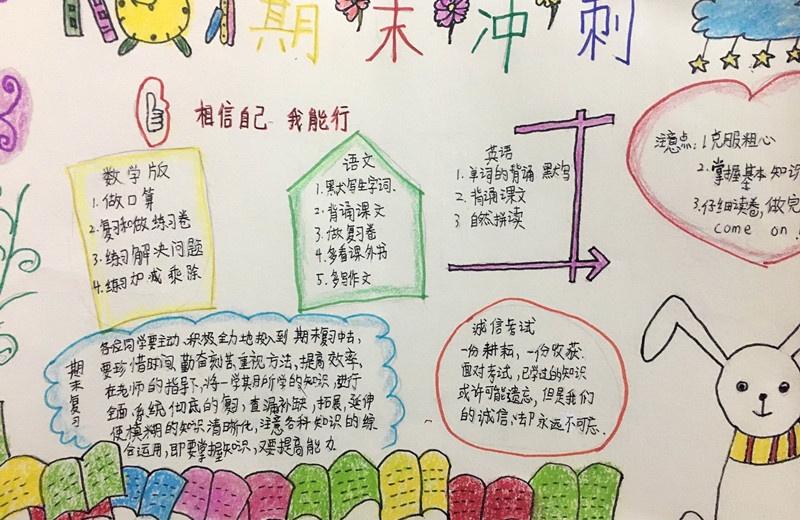 期末冲刺
相信自己 我能行
数学版
1.做口算
2.复习和做练习卷
3.练习解决问题
4.练习加减乘除
语文
1.默写生字词.
2.背诵课文
3.做复习卷
4.多看课外书
5.多写作文
英语
1.单词的背诵 默写
2.背诵课文
3 自然拼读
注意点:1克服粗心
2.掌握基本知识
3.仔细读卷,做完
come on!
期末复习
各位同学要主动、积极、全力地投入到期末复习中去,
要珍惜时间、勤奋刻苦、重视方法,提高效率,
在老师的指导下,将一学期所学的知识,进行
全面、系统、彻底的复习,查漏补缺,拓展,延伸
使模糊的知识清晰化,注意各科知识的综
合运用,即要掌握知识、又要提高能力.
诚信考试
一份耕耘,一份收获.
面对考试,已学过的知识
或许可能遗忘,但是我们
的诚信,永远不可忘.